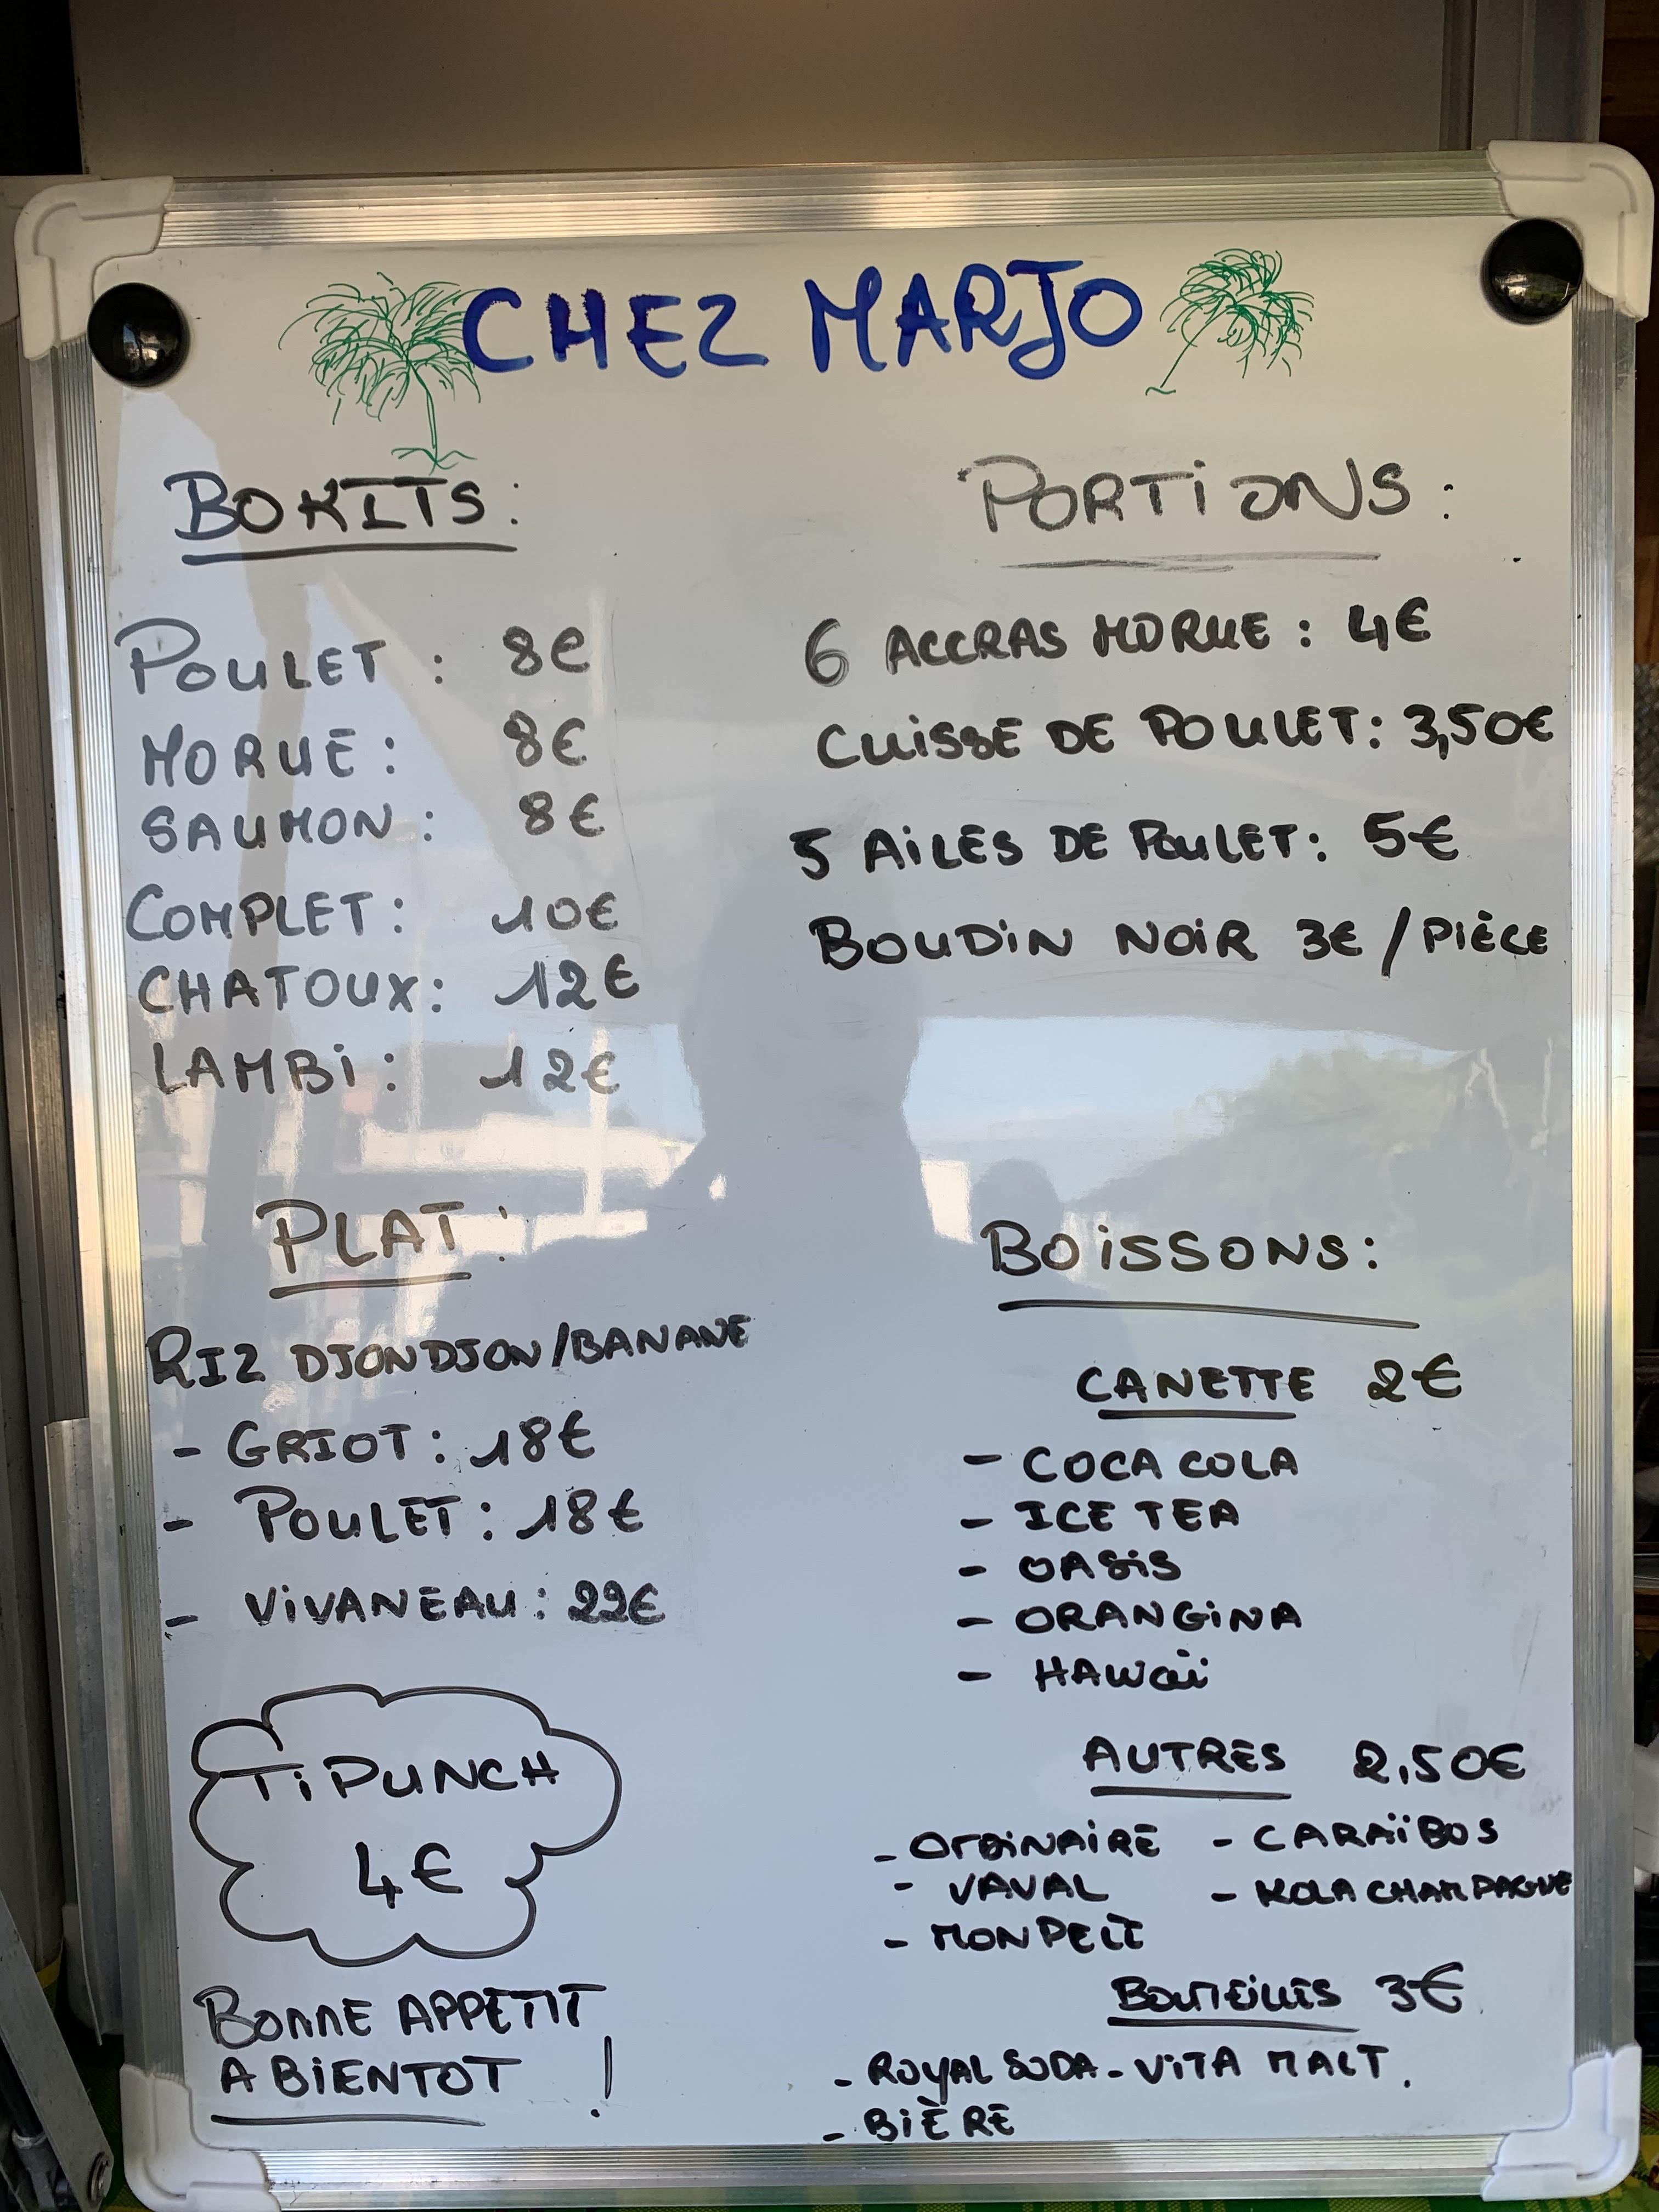 CHEZ MARJO
BOKITS :
POULET : 8€
MORUE : 8€
SAUMON : 8€
COMPLET : 10€
CHATOUX : 12€
LAMBi : 12€
PORTiONS :
6 ACCRAS MORUE : 4€
CUiSSE DE POULET : 3,50€
5 AiLES DE POULET : 5€
BOUDiN NOiR 3€ / PiÈCE
PLAT :
RIZ DJONDJON/BANANE
- GRIOT : 18€
- POULET : 18€
- ViVANEAU : 22€
TiPUNCH
4€
BONNE APPETIT
A BiENTOT !
BOiSSONS :
CANETTE 2€
- COCA COLA
- ICE TEA
- OASiS
- ORANGiNA
- HAWaïi
AUTRES 2,50€
- ORDiNAiRE - CARAÏBOS
- VAVAL - KOLA CHAMPAGNE
- MONPELI
BOUTEiLLES 3€
- ROYAL SODA - ViTA MALT.
- BiÈRE